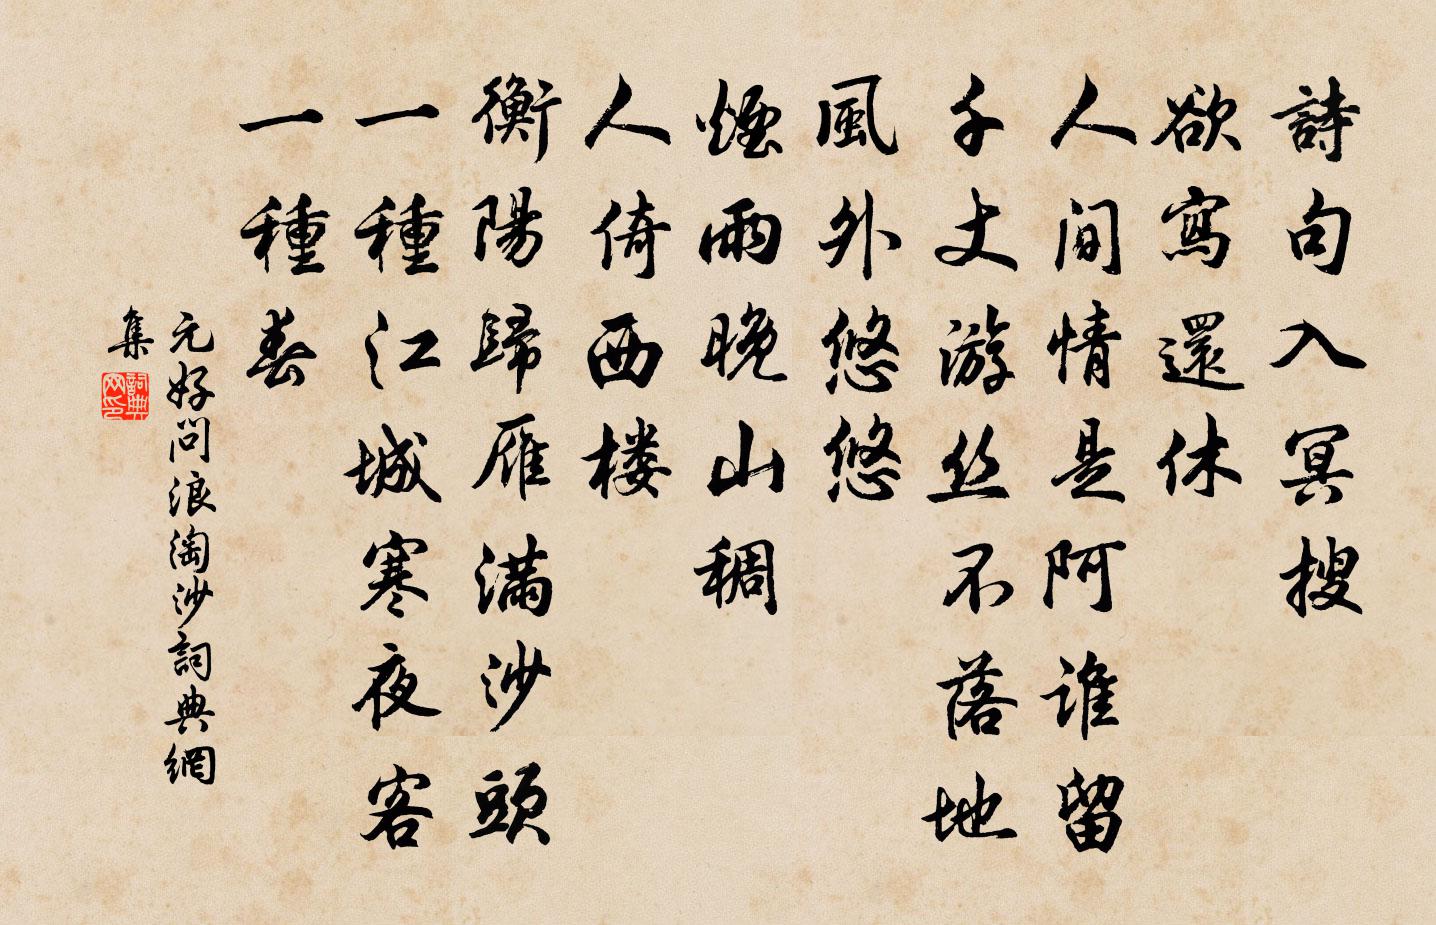 詩句入冥搜
欲寫還休
人间情是阿谁留
千丈游丝不落地
風外悠悠
煙雨晚山稠
人倚西楼
衡陽歸雁满沙頭
一種江城寒夜客
一種春
元好问浪淘沙詞典網
集
詞典网印